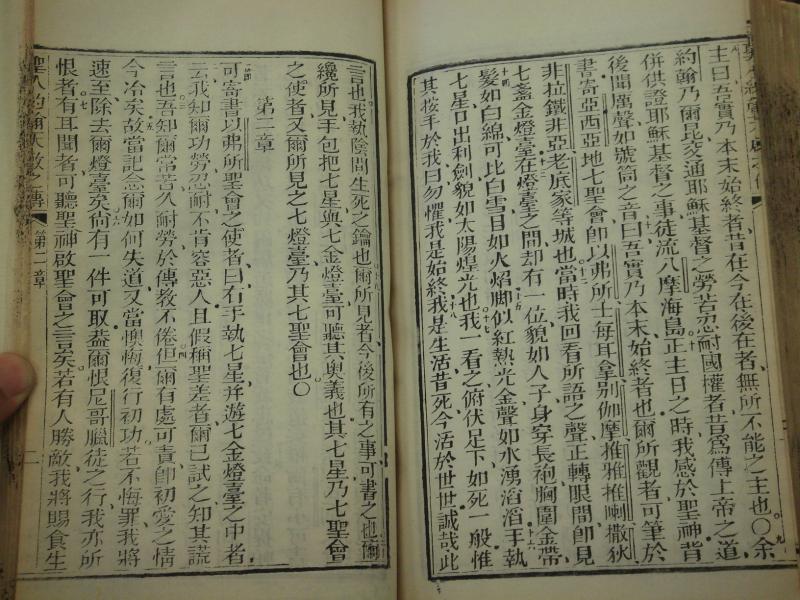 主曰吾實乃本末始終者昔在今在後在者無所不能之主也〇余
約翰乃爾昆交通耶穌基督之勞若忍耐國權者昔爲傳上帝之道
併供證耶穌基督之事徒流八摩海島正主日之時我感於聖神背
後聞厲聲如號筒之音曰吾實乃本末始終者也爾所觀者可筆於
書寄亞西亞地七聖會卽以弗所士每耳拿別伽摩推雅推喇撒狄
非拉鐵非亞老底家等城也當時我回看所語之聲正轉眼間卽見
七盞金燈臺在燈臺之間却有一位貌如人子身穿長袍胸圍金帶
髮如白綿可比白雪目如火焰脚似紅熱光金聲如水湧滔滔手執
七星口出利劍貌如太陽煌光也我一看之俯伏足下如死一般惟
其按手於我曰勿懼我是始終我是生活昔死今活於世世誠哉此
言也我執陰間生死之鑰也爾所見者今後所有之事可書之也爾
纔所見手包把七星與七金燈臺可聽其奧義也其七星乃七聖會
之使者又爾所見之七燈臺乃其七聖會也〇
第二章
可寄書以弗所聖會之使者曰右手執七星并遊七金燈臺之中者
云我知爾功勞忍耐不肯容惡人且假稱聖差者爾已試之知其謊
言也吾知爾常苦久耐勞於傳教不倦但爾有處可責卽初愛之情
今冷矣故當記念爾如何失道又當懊悔復行初功若不悔罪我將
速至除去爾燈臺矣尙有一件可取葢爾恨尼哥臘徒之行我亦所
恨者有耳聞者可聽聖神啟聖會之言矣若有人勝敵我將賜食生
聖人約翰天啟之傳 第二章 二